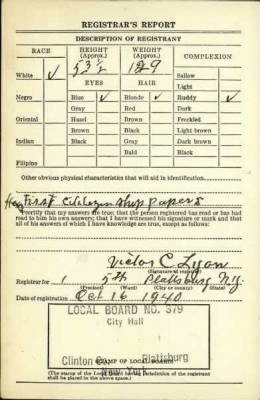 REGISTRAR'S REPORT
DESCRIPTION OF REGISTRANT
RACE HEIGHT (Approx.) WEIGHT (Approx.) COMPLEXION
White ✓ 5 3 1/2 129 Sallow
EYES HAIR Light
Negro Blue ✓ Blonde ✓ Ruddy ✓
Gray Red Dark
Oriental Hazel Brown Freckled
Brown Black Light brown
Indian Black Gray Dark brown
Bald Black
Filipino
Other obvious physical characteristics that will aid in identification
Has First Citizenship papers
I certify that my answers are true; that the person registered has read or has had read to him his own answers; that I have witnessed his signature or mark and that all of his answers of which I have knowledge are true, except as follows:
Victor C. Lyon
(Signature of registrar)
Registrar for 1 5th Plattsburg N.Y.
(Precinct) (Ward) (City or county) (State)
Date of registration Oct 16 1940
LOCAL BOARD NO. 379
City Hall
Clinton Co. Plattsburg
New York
(STAMP OF LOCAL BOARD)
(The stamp of the Local Board having jurisdiction of the registrant shall be placed in the above space.)